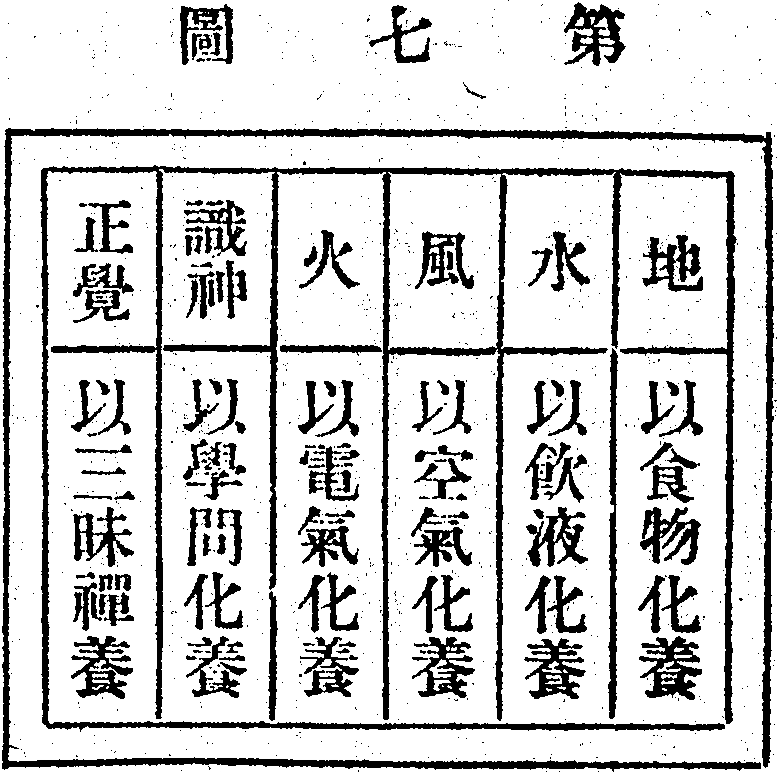 第七圖
地
以食物化養
水
以飲液化養
風
以空氣化養
火
以電氣化養
識神
以學問化養
正覺
以三昧禪養